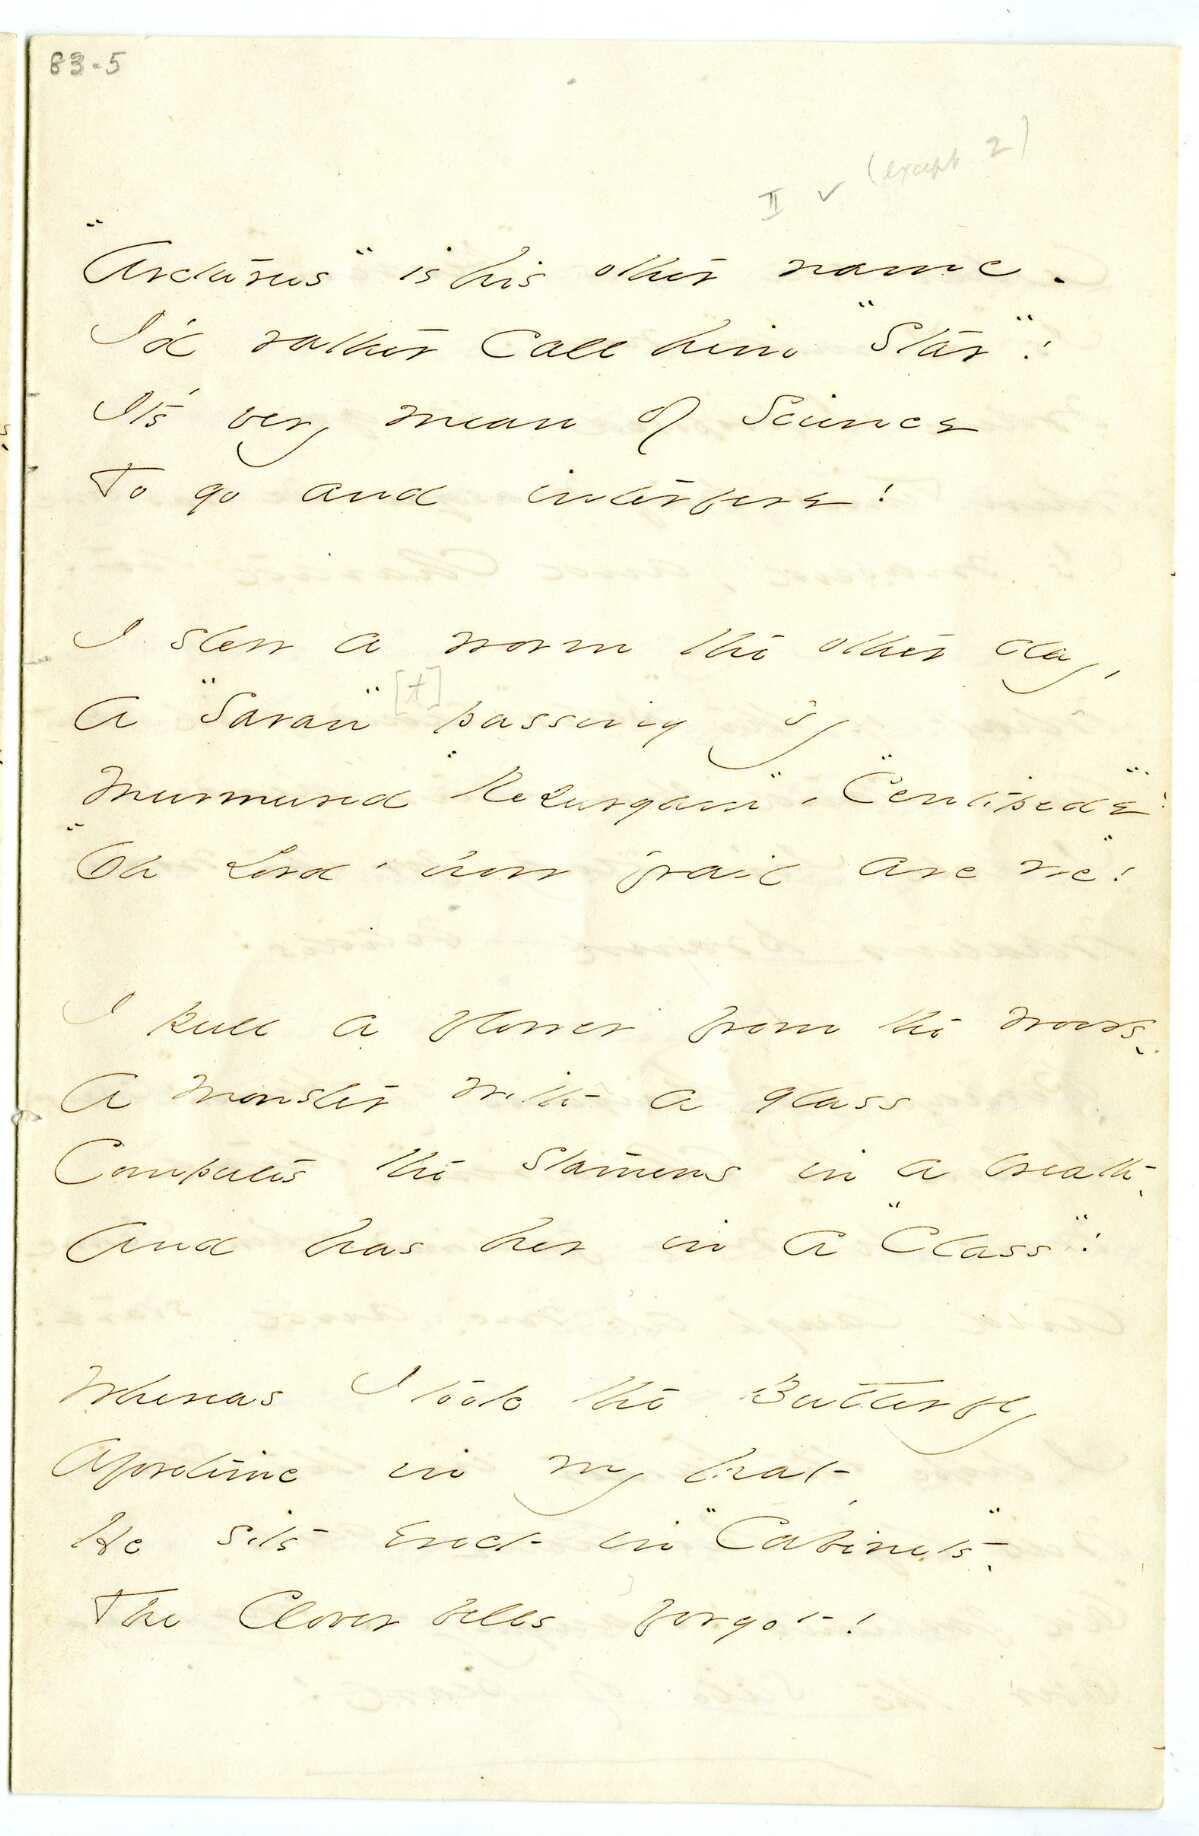 83-5
(except 2)
II ✓
"Arcturus" is his other name.
I'd rather Call him "Star"!
It's very mean of Science
To go and interfere!
I slew a worm the other day,
A "Savan" [t] passing by
Murmured "Resurgam" - "Centipede"!
"Oh Lord - how frail are we"!
I pull a flower from the woods -
A monster with a glass
Computes the stamens in a breath -
And has her in a "Class"!
Whereas I took the Butterfly
Aforetime in my hat -
He sits erect in "Cabinets" -
The Clover bells forgot!